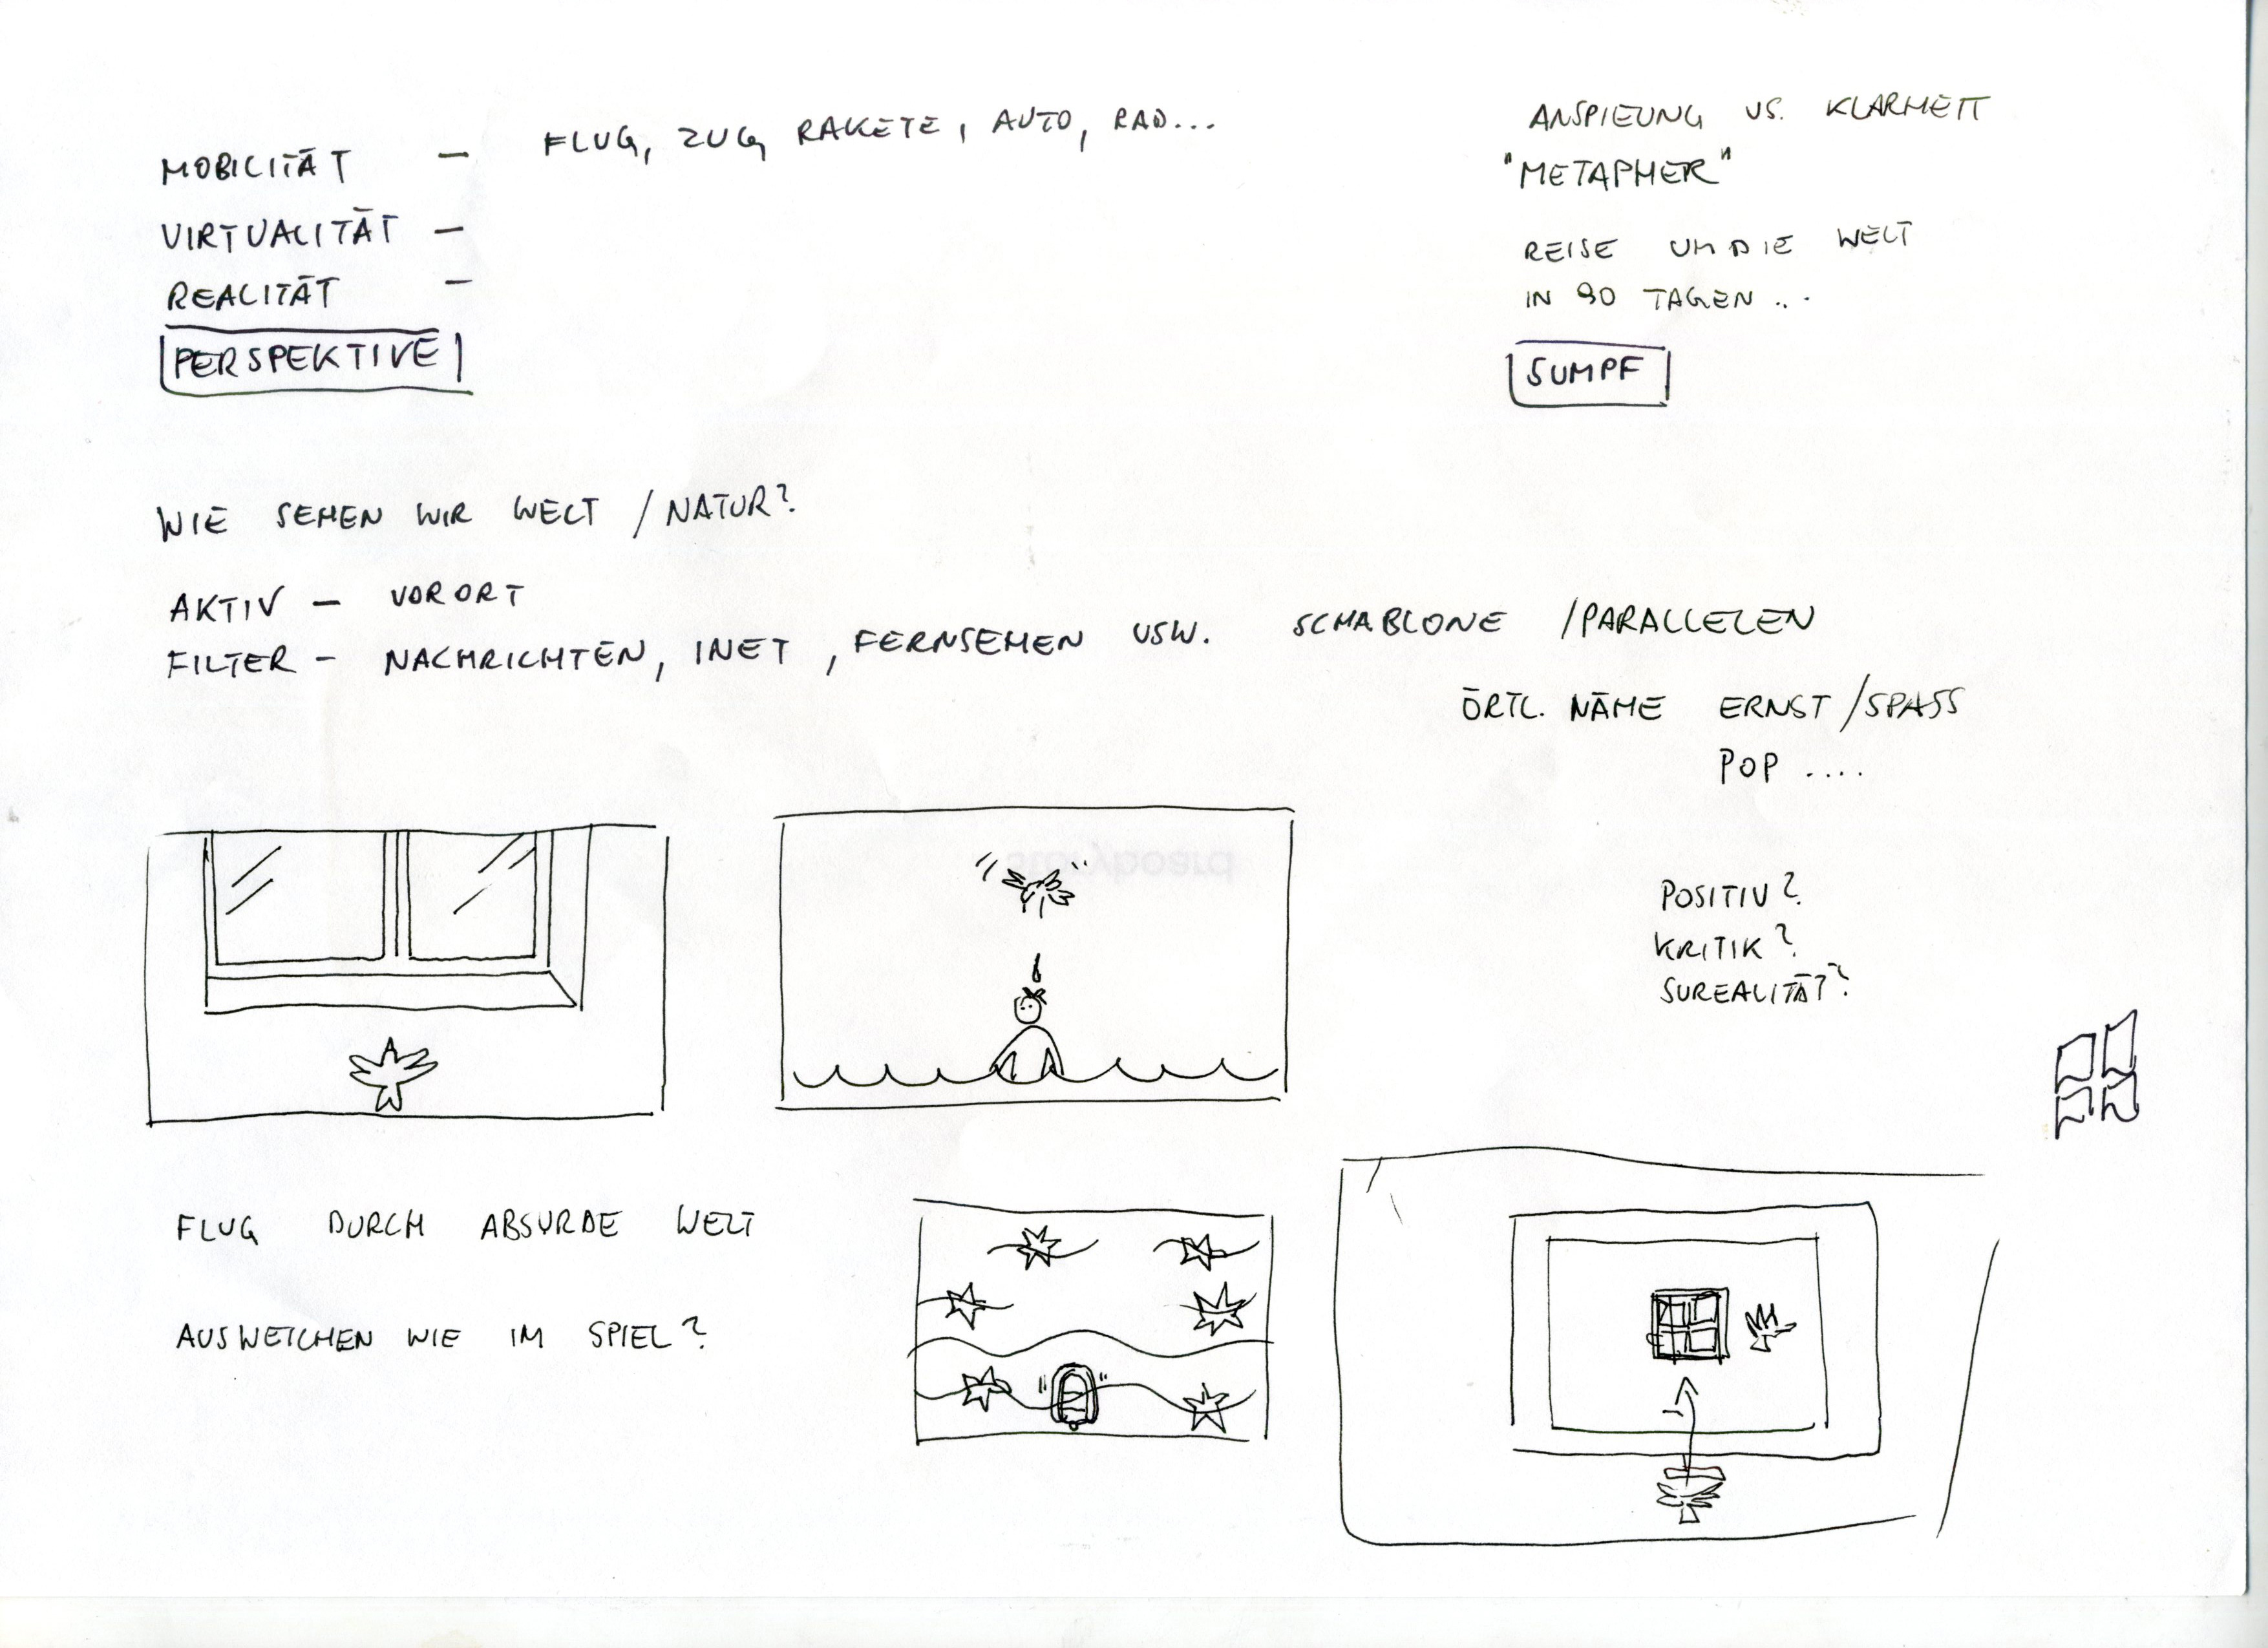 MOBILITÄT — FLUG, ZUG, RAKETE, AUTO, RAD...
VIRTUALITÄT —
REALITÄT —
PERSPEKTIVE
ANSPIELUNG VS. KLARHEIT
"METAPHER"
REISE UM DIE WELT
IN 90 TAGEN ...
SUMPF
WIE SEHEN WIR WELT / NATUR?
AKTIV — VORORT
FILTER - NACHRICHTEN, INET, FERNSEHEN USW. SCHABLONE /PARALLELEN
ÖRTL. NÄHE ERNST/SPASS
POP ....
storyboard
POSITIV?
KRITIK?
SUREALITÄT?
FLUG DURCH ABSURDE WELT
AUSWEICHEN WIE IM SPIEL?